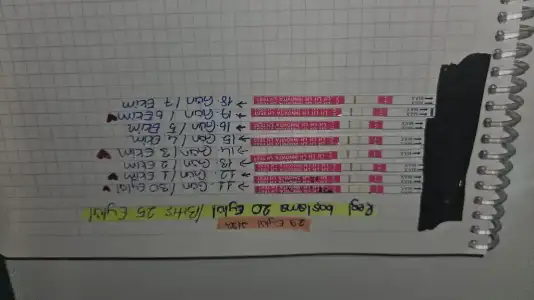 Regl başlama 20 Eylül / Bitiş 25 Eylül
11. Gün / 30 Eylül
12. Gün / 1 Ekim
13. Gün / 2 Ekim
14. Gün / 3 Ekim
15. Gün / 4 Ekim
16. Gün / 5 Ekim
17. Gün / 6 Ekim
18. Gün / 7 Ekim